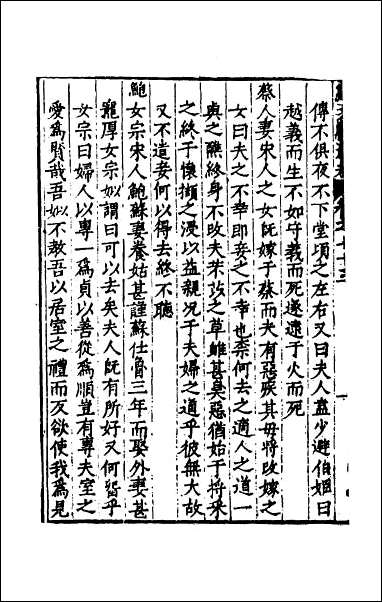 傳不俱夜不下堂頃之左右又曰夫人盍少避伯姬曰
越義而生不如守義而死遂逮于火而死
蔡人妻宋人之女旣嫁于蔡而夫有惡疾其母將改嫁之
女曰夫之不幸即妾之不幸也柰何去之適人之道一
與之醮終身不改夫采苡之草雖甚臭惡猶始于捋采
之終于懷擷之浸以益親况于夫婦之道乎彼無大故
又不遣妾何以得去終不聽
鮑女宗宋人鮑蘇妻養姑甚謹蘇仕衛三年而娶外妻甚
寵厚女宗姒謂曰可以去矣夫人旣有所好又何留乎
女宗曰婦人以專一爲貞以善從爲順豈有專夫室之
愛爲賢哉吾姒不教吾以居室之禮而反欲使我爲見